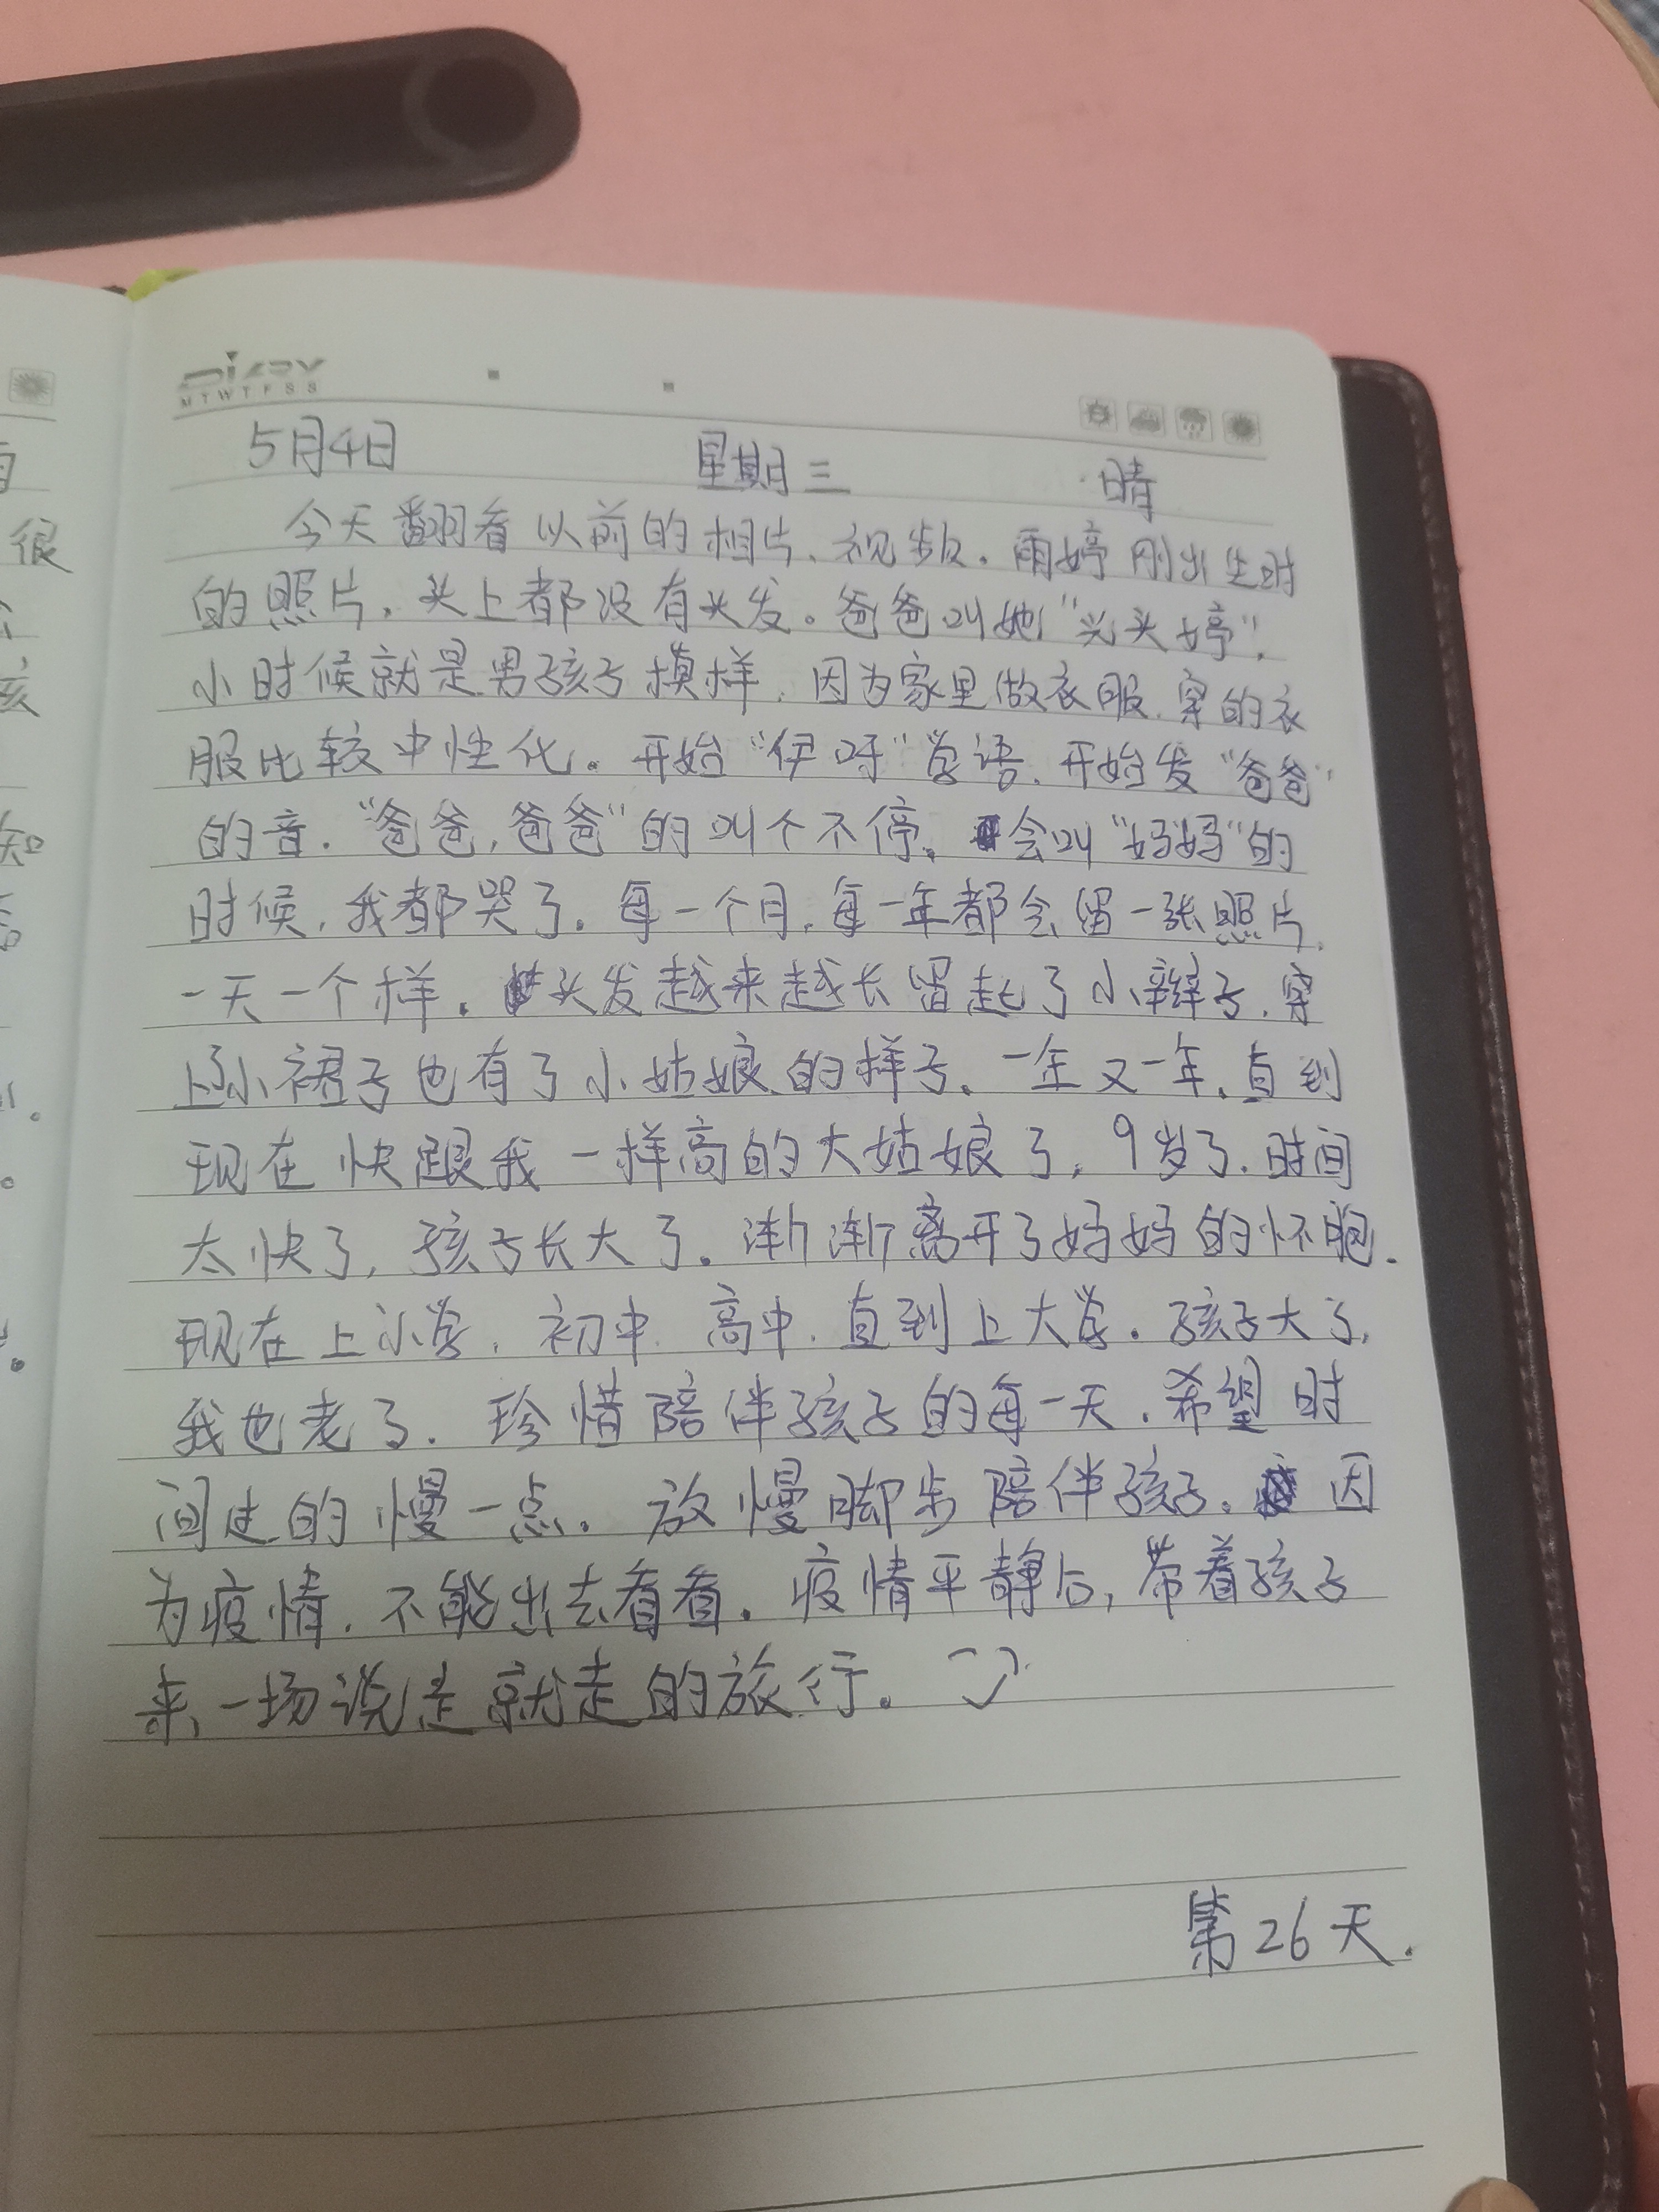 DIARY
M T W T F S S
5月4日 星期三 晴
今天翻看以前的相片、视频。雨婷刚出生时
的照片,头上都没有头发。爸爸叫她“光头婷”.
小时候就是男孩子模样.因为家里做衣服.穿的衣
服比较中性化。开始“伊呀”学语.开始发“爸爸”
的音.“爸爸,爸爸”的叫个不停。会叫“妈妈”的
时候,我都哭了.每一个月.每一年都会留一张照片.
一天一个样.头发越来越长留起了小辫子.穿
上小裙子也有了小姑娘的样子.一年又一年.直到
现在快跟我一样高的大姑娘了,9岁了.时间
太快了,孩子长大了.渐渐离开了妈妈的怀抱.
现在上小学.初中.高中.直到上大学.孩子大了,
我也老了.珍惜陪伴孩子的每一天.希望时
间过的慢一点.放慢脚步陪伴孩子.因
为疫情.不能出去看看.疫情平静后,带着孩子
来一场说走就走的旅行。
第26天.
很
孩
知